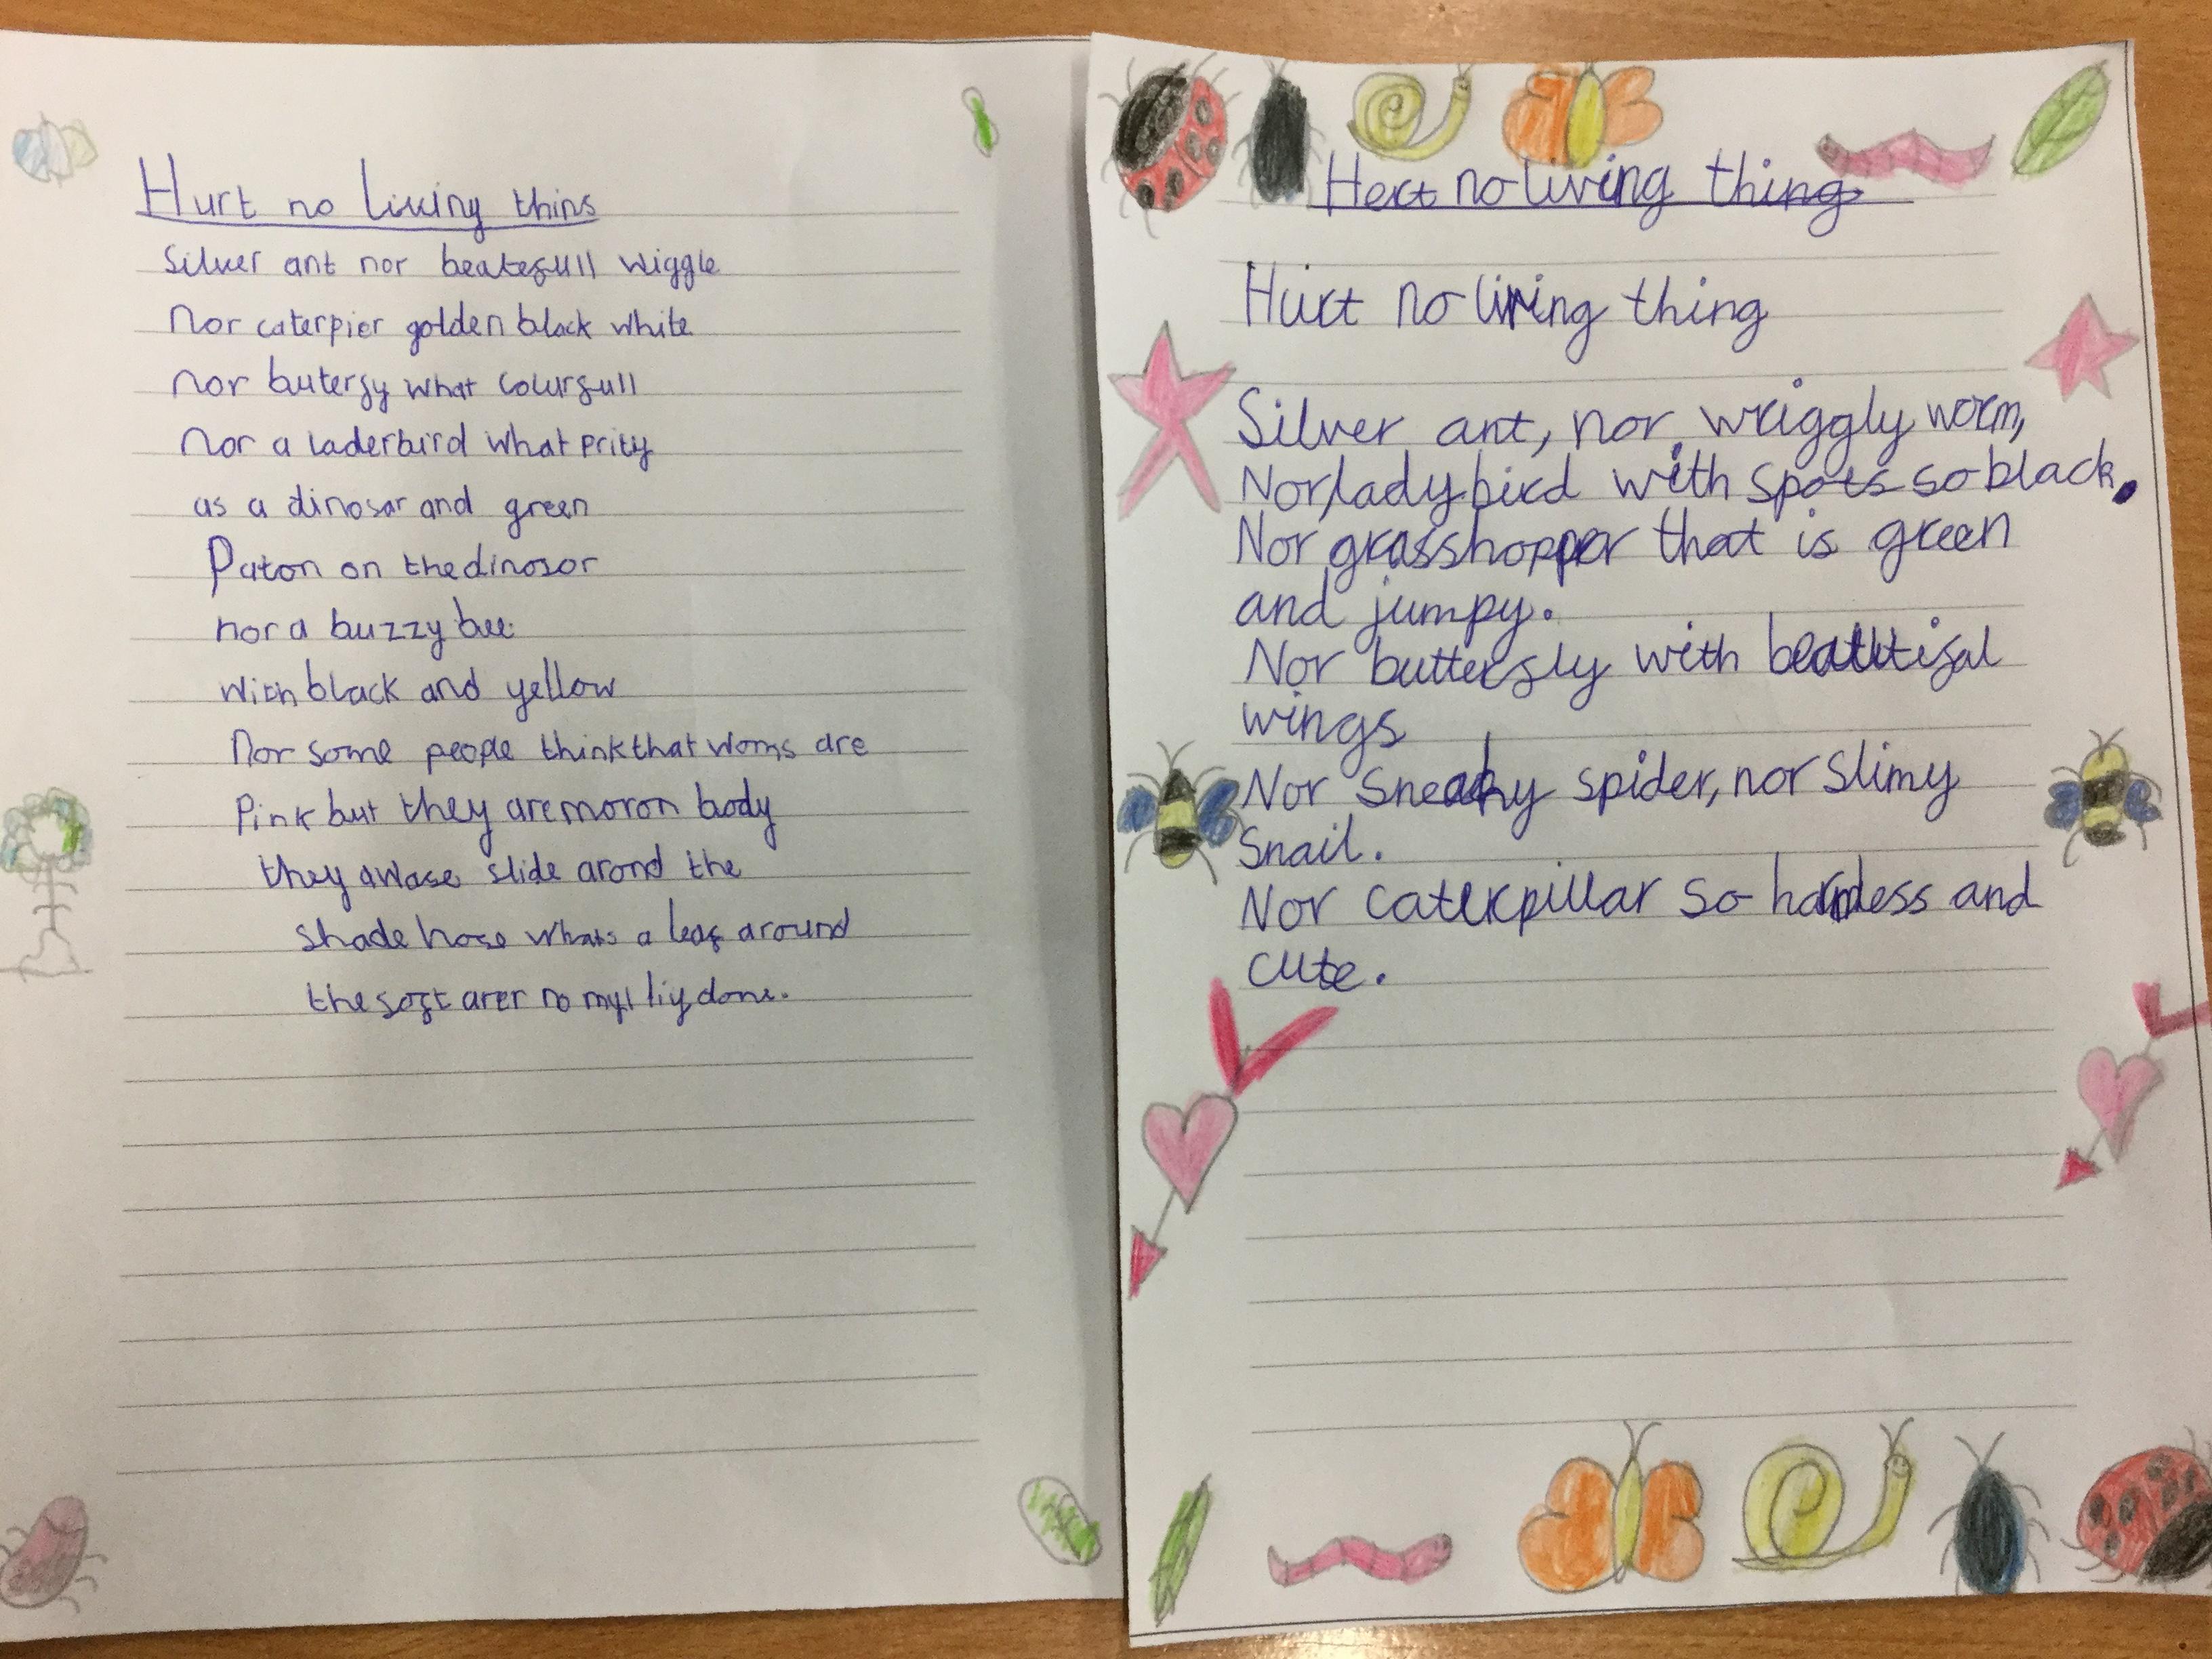 Hurt no living thins
Silver ant nor beatefull wiggle
Nor caterpier golden black white
nor buterfy what colurfull
Nor a laderbird what prity
as a dinosar and green
Paton on the dinosor
nor a buzzy bee
with black and yellow
Nor some people think that woms are
Pink but they are moron body
they awase slide arond the
shade hose whats a leaf around
the soft arer no
Hert no living thing
Hurt no living thing
Silver ant, nor wriggly worm,
Nor ladybird with spots so black.
Nor grasshopper that is green
and jumpy.
Nor butterfly with
wings
Nor sneaky spider, nor slimy
Snail.
Nor caterpillar so harmless and
cute.